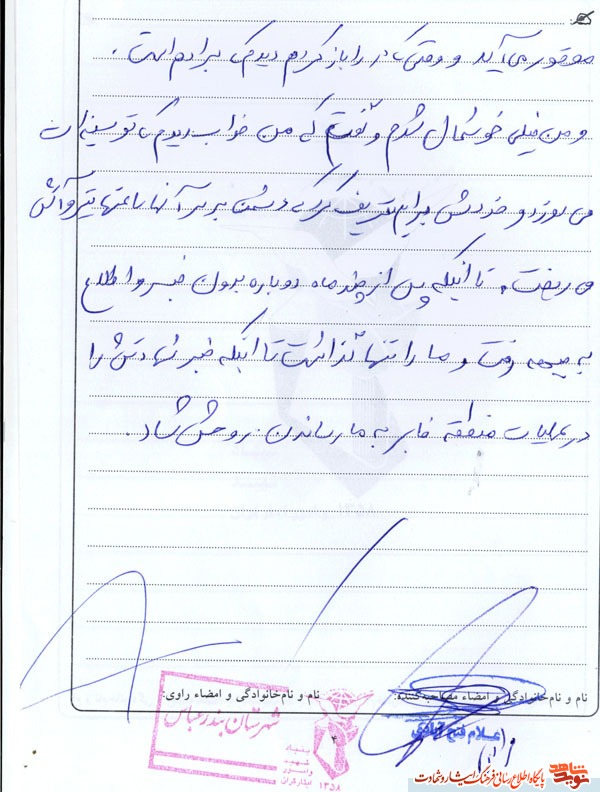 می‌آید و وقتی که در را باز کردم دیدم که برادرم است.
و من خیلی خوشحال شدم و گفتم که من خواب دیدم که تو سینه‌ات
می‌سوزد و خودش برایم تعریف کرد که دشمن بر سر آنها تیر و آتش
می‌ریخت. تا اینکه پس از چند ماه دوباره بدون خبر و اطلاع
به جبهه رفت و ما را تنها گذاشت تا اینکه خبر شهادتش را
در عملیات منطقه به ما رساندن. روحش شاد.
نام و نام‌خانوادگی و امضاء مصاحبه‌کننده:
نام و نام‌خانوادگی و امضاء راوی:
شهرستان بندرعباس
بنیاد
شهید
وامور
ایثارگران
۱۳۵۸
۴
نوید شاهد
پایگاه اطلاع رسانی فرهنگ ایثار و شهادت